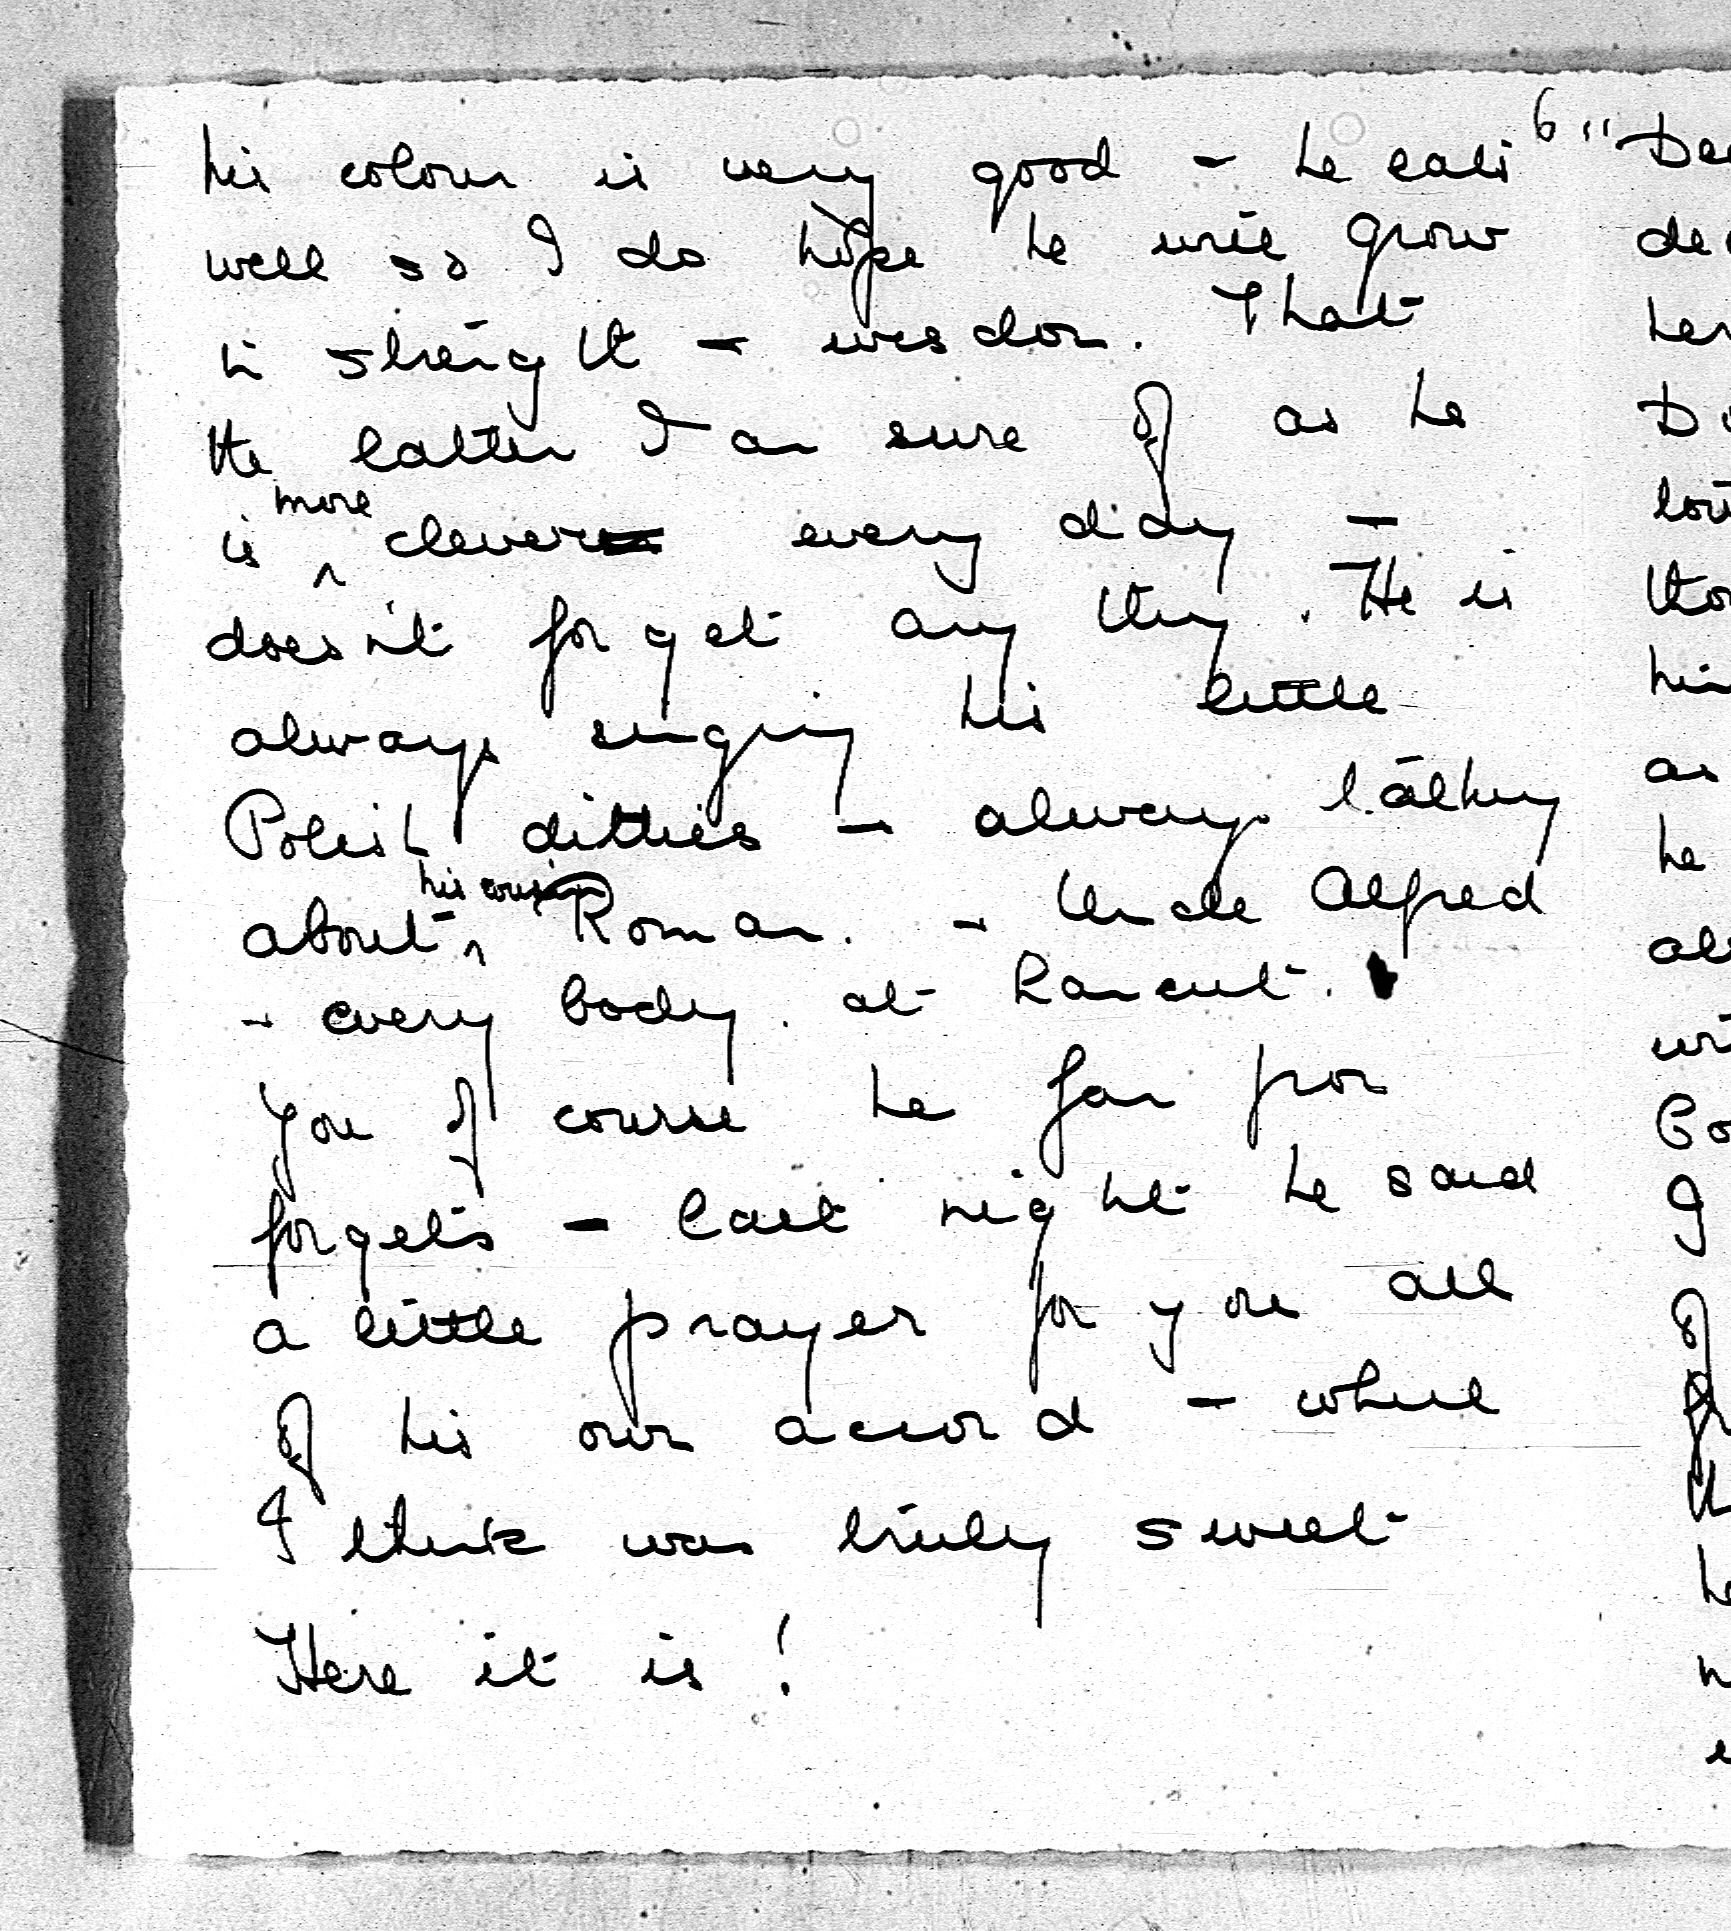 his colour is very good - he eats
well so I do hope he will grow
in strenght - wisdom. That
the latter I am sure of as he
is more clever every diay -
doesn't forget any thing. He is
always singing his little
Polish ditties - always talking
about his cousin Roman. - Uncle Alfred
- every body. at Lancut.
You of course he far from
forgets - last night he said
a little prayer for you all
of his own accord - which
I think was truly sweet
Here it is!
6
"Dea
de
her
D
lou
tho
him
as
he
al
wi
Co
I
of
h